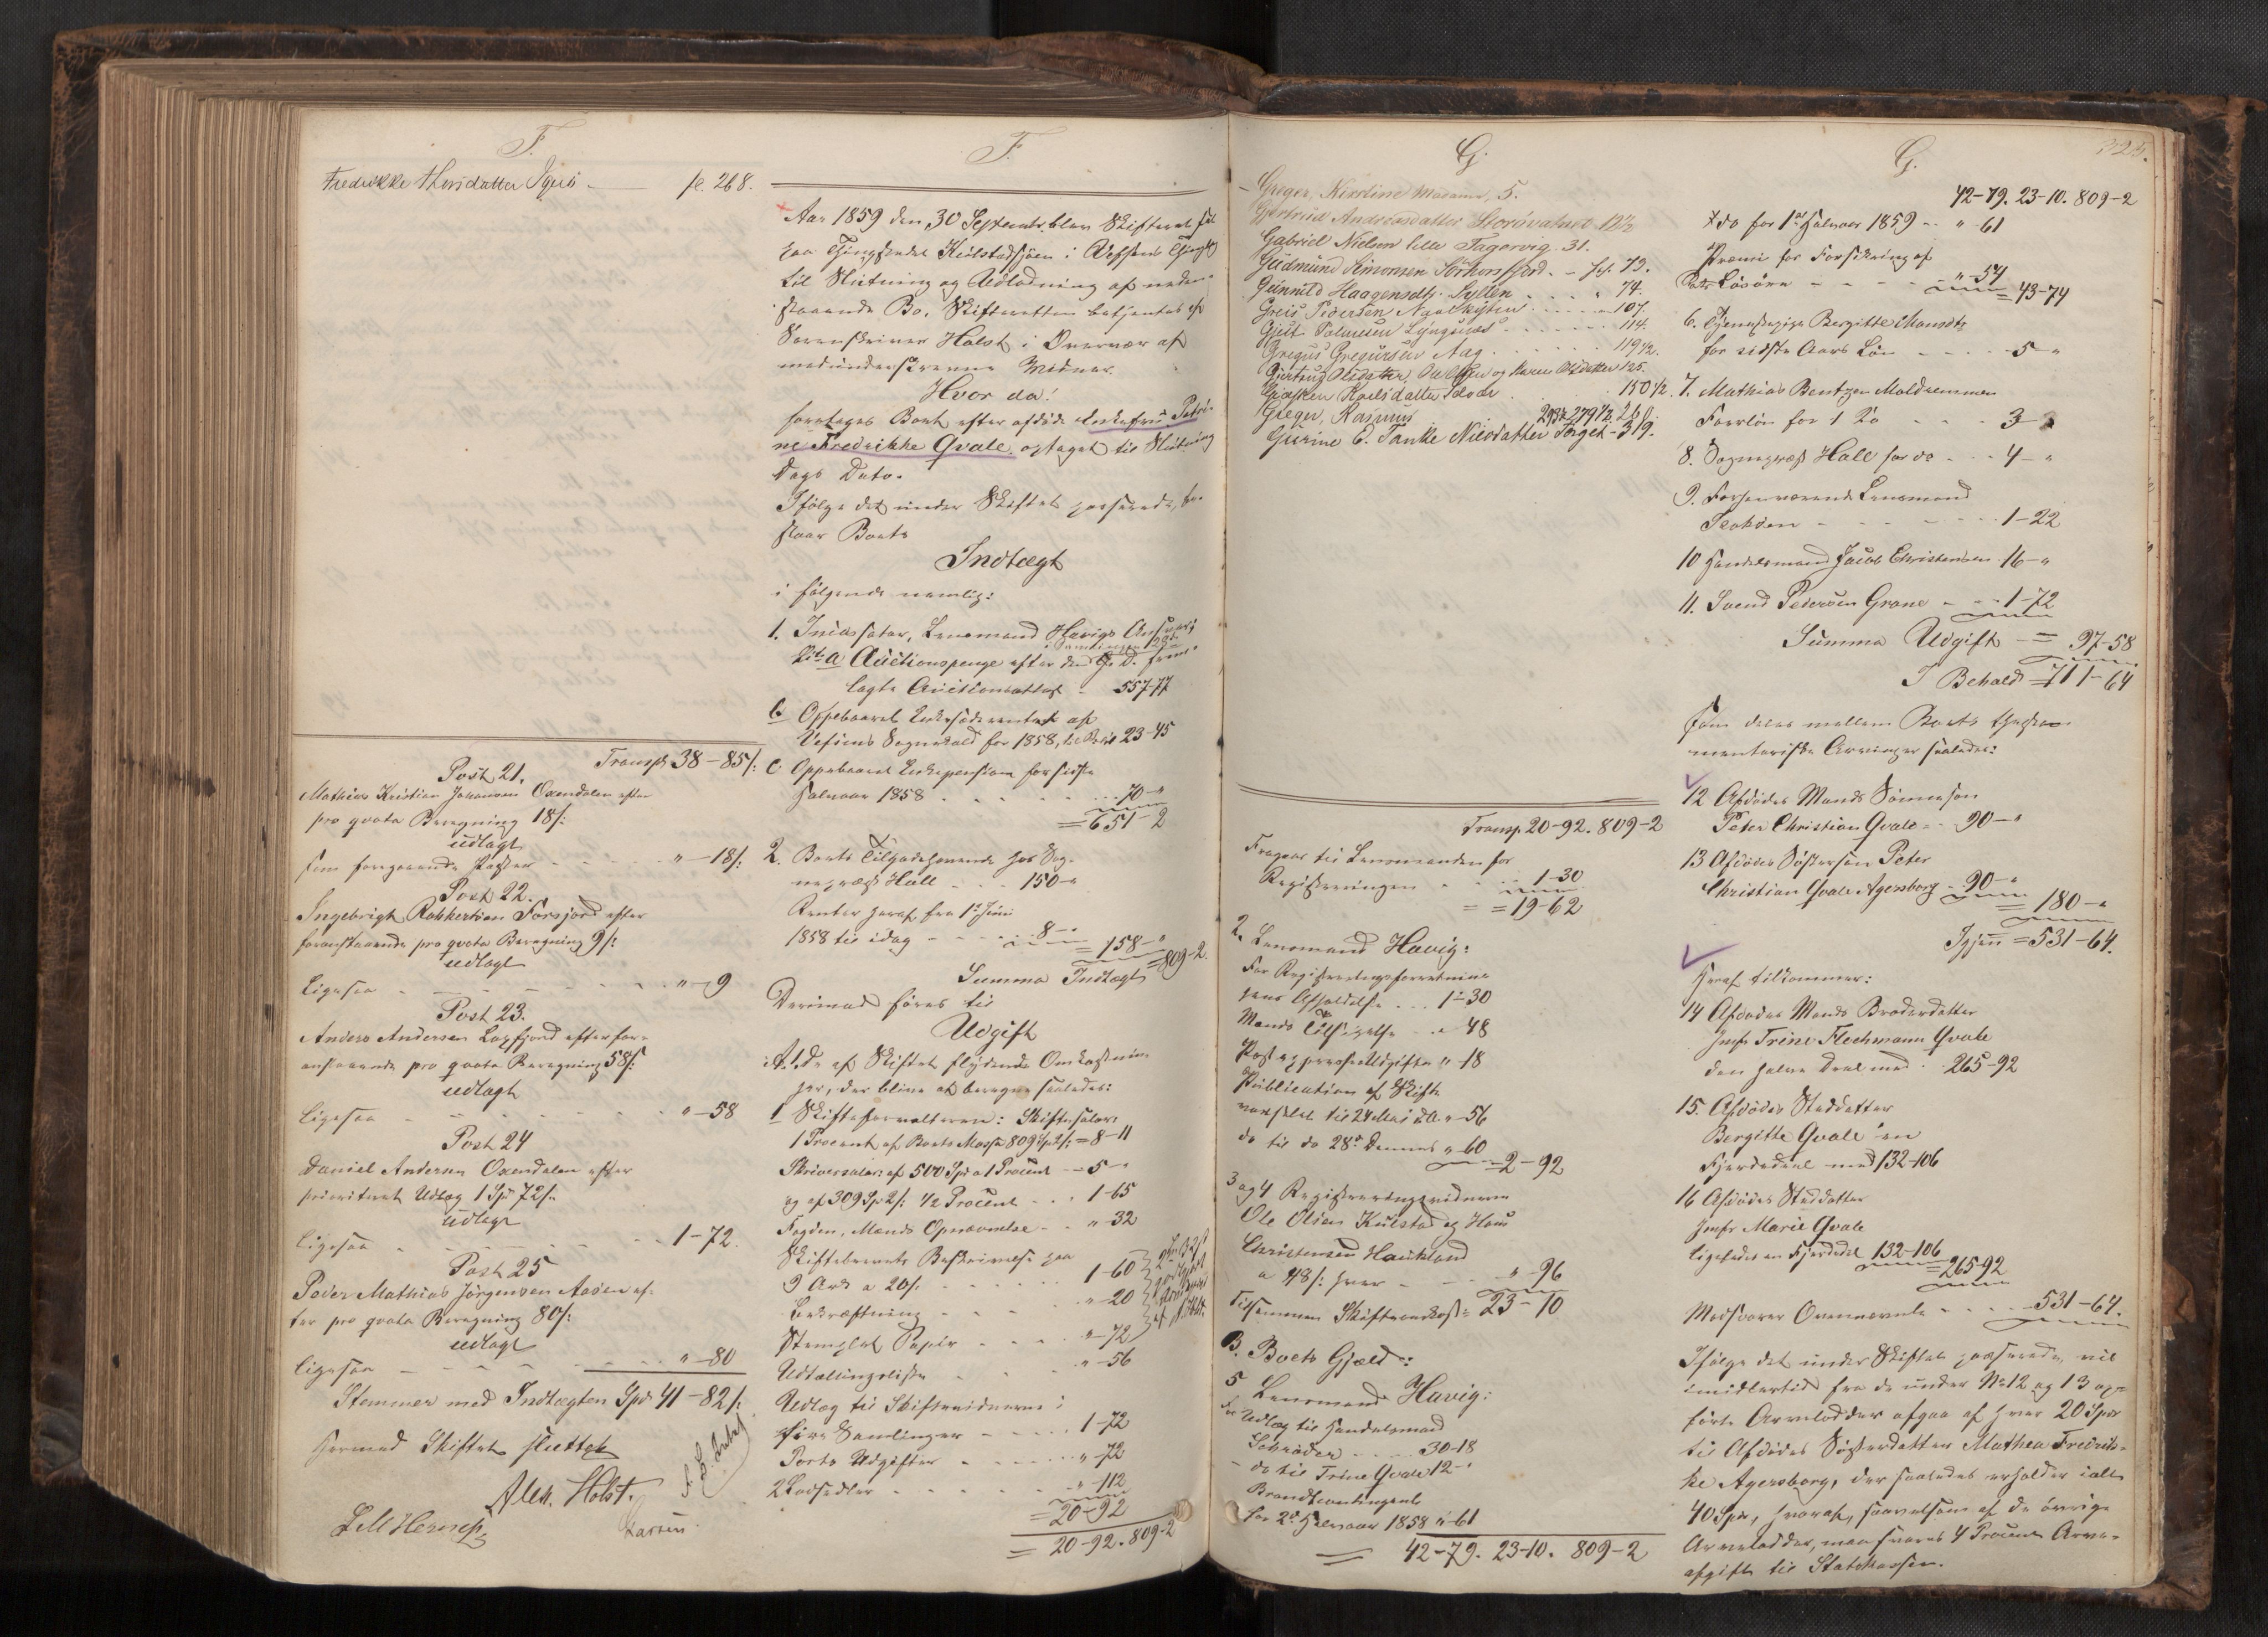 F.
Fredrikke Thorsdatter Igerö — fl. 268.
Transpt 38-85/:
Post 21.
Mathias Kristian Johannesen Oxendalen efter
pro qvota Beregning 18/:
udlagt
som foregaaende Poster - - - " -18/:
Post 22.
Ingebrigt Robbertsen Forsjord efter
foranstaaende pro qvota Beregning 9/:
udlagt
ligesaa - - - "-9
Post 23.
Anders Andersen Laxfjord efter for-
anstaaende pro qvota Beregning 58/:
udlagt
ligesaa - - - "-58
Post 24
Daniel Andersen Oxendalen efter
prioriteret Udlæg 1 Spd 72/:
udlagt
ligesaa - - - 1-72.
Post 25
Peder Mathias Jörgensen Aasen ef-
ter pro qvota Beregning 80/:
udlagt
ligesaa - - - "-80
Stemmer med Indtægten Spd 41-82/:
Hermed Skiftet sluttet
Alex. Holst.
F.
Aar 1859 den 30 September blev Skifteret sat
paa Thingstedet Kulstadsjøen i Vefsens Thingl.
til Slutning og Udlodning af neden-
staaende Bo. Skifteretten betjentes af
Sorenskriver Holst i Overvær af
medunderskrevne Vidner.
Hvor da!
foretages Boet efter afdöde Enkefru Petri-
ne Fredrikke Qvale, optaget til Slutning
Dags Dato.
Ifölge det under Skiftet passerede, be-
staar Boets
Indtægt
i fölgende nemlig:
1. Incassator, Lensmand Havigs Ansvar;
Litr a Auctionspenge efter den frem-
lagte Auctionsattest - 557-77
b Oppebaaret Enkesæderente af
Vefsens Sognekald for 1858, 23-45
c Oppebaaret Enkepension for sidste
Halvaar 1858 - - - 70-"
= 651-2
2. Boets Tilgodehavende hos Sog-
nepræst Hall - - - 150-"
Renter heraf fra 1ste Juni
1858 til idag - - - 8-"
= 158-"
Summa Indtægt = 809-2.
Derimod föres til
Udgift
A. De af Skiftet flydende Omkostnin-
ger, der blive at beregne saaledes:
1 Skifteforvalteren: Skiftesalær:
1 Procent af Boets Masse 809 Spd 2/: = 8-11
Skriversalær af 500 Spd a 1 Procent - 5-"
og af 309 Spd 2/: 1/2 Procent - - - 1-65
Fogden, Mænds Opnævnelse - - "-32
Skiftebrevets Beskrivelse paa
9 Ark a 20/: - - - 1-60
Bekræftning - - - "-20
Stemplet Papir - - - "-72
Udtallingsliste - - - "-56
Udlæg til Skiftevidnerne i
fire Samlinger - - - 1-72
Porto Udgifter - - - "-72
2 Lodsedler - - - "-112
= 20-92
= 20-92. 809-2
G.
Greger, Kirstine Madame, 5.
Gjertrud Andreasdatter Storövatnet 12 1/2
Gabriel Nielsen lille Fagervig. 31.
Gudmund Simonsen Sörhorsfjord. - fol. 73.
Gunnild Haagensdtr. Syllen - - - " 74.
Greis Pedersen - - - 107.
Gjest Paulusen Lyngsnæs - - - 114.
Gregus Gregursen Aag - - - 119 1/2.
Gjertrud Olsdatter, Ole Olsen og Karen Olsdatter 125.
Karlsdatter - - - 150 1/2.
Greger, Rasmus 279 1/2. 260.
Gurine C. Tanke Nilsdatter Torget - 319.
Transp. 20-92. 809-2
Fragaar til Lensmanden for
Registreringen - - - 1-30
= 19-62
2. Lensmand Havig:
For Registreringsforretnin-
gens Afholdelse - - - 1-30
Mænds Tilsigelse - " 48
Post expresseudgifter "-18
Publication af Skifte
varslet til 24 Mai "-56
do til do 28de Dennes "-60
= 2-92
3 og 4 Registreringsvidnerne
Ole Olsen Kulstad og Hans
Christensen Haukland
a 48/: hver - - - "-96
Tilsammen Skifteomkost = 23-10
B. Boets Gjæld:
5 Lensmand Havig:
for Udlæg til Handelsmand
Schröder - - - 30-18
do til Trine Qvale 12-"
Brandcontingent
for 2det Halvaar 1858 "-61
= 42-79. 23-10. 809-2
G.
325.
42-79. 23-10. 809-2
do for 1ste Halvaar 1859 - - " 61
Præmie for Forsikring af
Boets Lösöre - - - "-54
= 43-74
6. Tjenestepige Bergitte Monsdtr
for sidste Aars Lön - - - 5-"
7. Mathias Bentzen Moldremmen
Foerlön for 1 Ko - - - 3-"
8. Sognepræst Hall for do - - - 4-"
9. Forhenværende Lensmand
Jacobsen - - - 1-22
10 Handelsmand Jacob Christensen 16-"
11. Svend Pedersen Grane - - - 1-72
Summa Udgift = 97-58
I Behold = 711-64
som deles mellem Boets testa-
mentariske Arvinger saaledes:
12 Afdödes Mands Sönnesön
Peter Christian Qvale - - 90-"
13 Afdödes Sösterson Peter
Christian Qvale Agersborg - 90-"
= 180-"
Igjen = 531-64.
Heraf tilkommer:
14 Afdödes Mands Broderdatter
Jomfr Trine Flechmann Qvale
den halve Deel med - 265-92
15. Afdödes Steddatter
Bergitte Qvale en
Fjerdedeel med 132-106
16 Afdödes Steddatter
Jomfr Marie Qvale
ligeledes en Fjerdedel 132-106
= 265-92
Modsvarer Ovennævnte - - - 531-64.
Ifölge det under Skiftet passerede, vil
imidlertid fra de under No 12 og 13 op-
förte Arvelodder afgaa af hver 20 Spd
til Afdödes Sösterdatter Mathea Fredrik-
ke Agersborg, der saaledes erholder ialt
40 Spd, hvoraf, saavelsom af de övrige
Arvelodder, maa svares 4 Procent Arve-
afgift til Statskassen.